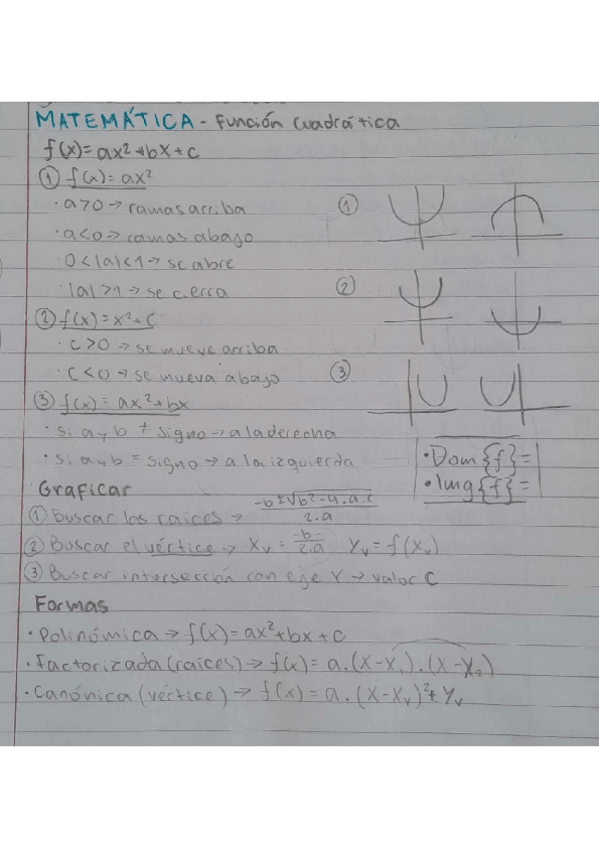 MATEMÁTICA - Función Cuadrática
f(x)= ax²+bx+c
① f(x)= ax²
· a>0 → ramas arriba
· a<0 → ramas abajo
· 0<|a|<1 → se abre
· |a|>1 → se cierra
② f(x)= x²+c
· c>0 → se mueve arriba
· c<0 → se mueva abajo
③ f(x)= ax²+bx
· si a y b ≠ signo → a la derecha
· si a y b = signo → a la izquierda
①
②
③
· Dom{f}=
· Img{f}=
Graficar
① Buscar las raíces → -b±√b²-4.a.c / 2.a
② Buscar el vértice → Xv = -b / 2.a Yv = f(Xv)
③ Buscar intersección con eje Y → valor C
Formas
· Polinómica → f(x)= ax²+bx+c
· Factorizada (raíces) → f(x)= a.(X-X₁).(X-X₂)
· Canónica (vértice) → f(x)= a.(X-Xv)²+Yv